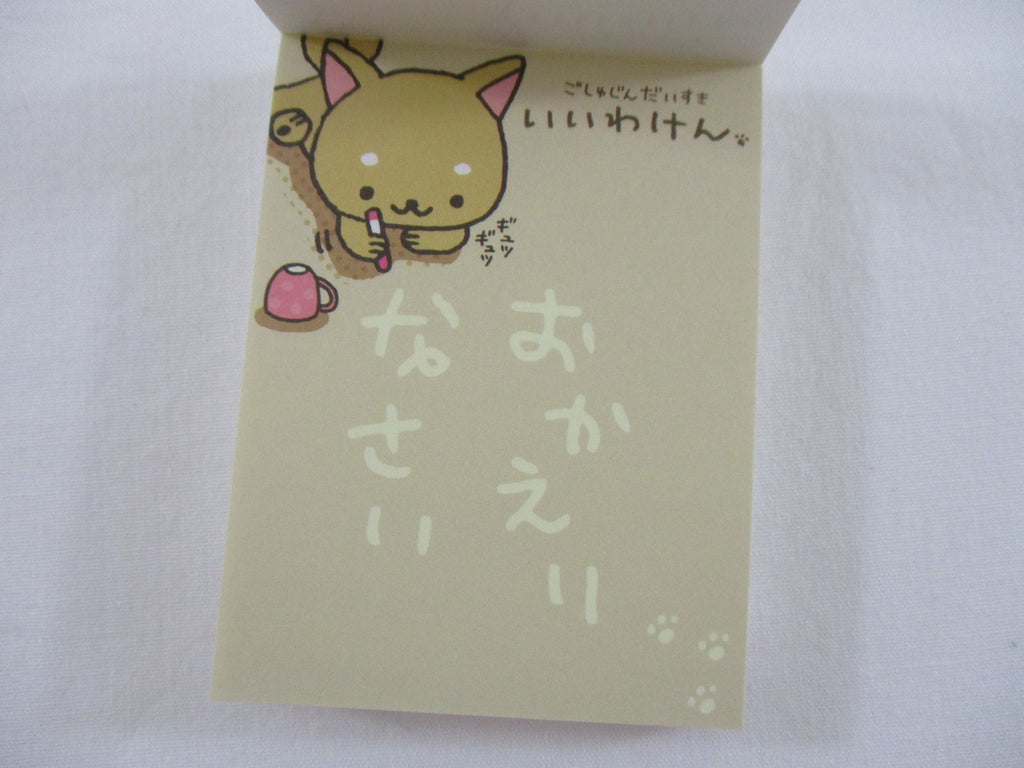 ごしゅじんだいすき
いいわけん
ギュッ
ギュッ
おかえり
なさい